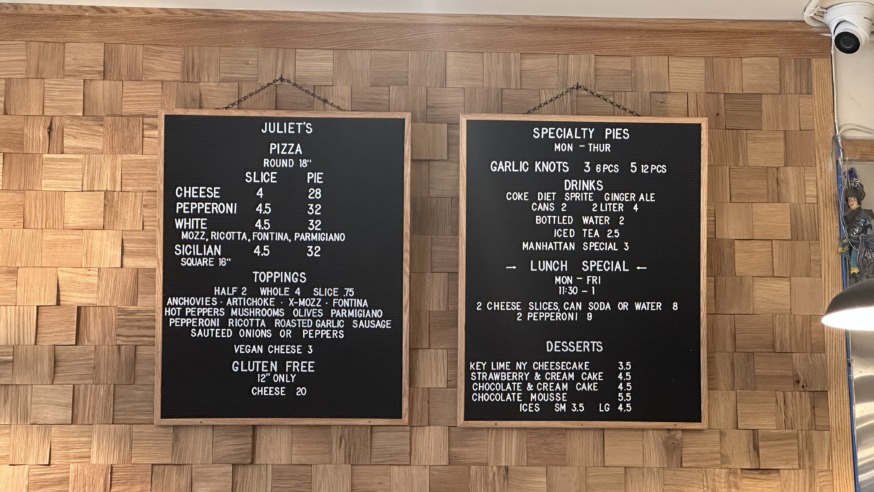 JULIET'S
PIZZA
ROUND 18"
SLICE PIE
CHEESE 4 28
PEPPERONI 4.5 32
WHITE 4.5 32
MOZZ, RICOTTA, FONTINA, PARMIGIANO
SICILIAN 4.5 32
SQUARE 16"
TOPPINGS
HALF 2 WHOLE 4 SLICE .75
ANCHOVIES · ARTICHOKE · X-MOZZ · FONTINA
HOT PEPPERS MUSHROOMS OLIVES PARMIGIANO
PEPPERONI RICOTTA ROASTED GARLIC SAUSAGE
SAUTEED ONIONS OR PEPPERS
VEGAN CHEESE 3
GLUTEN FREE
12" ONLY
CHEESE 20
SPECIALTY PIES
MON - THUR
GARLIC KNOTS 3 6 PCS 5 12 PCS
DRINKS
COKE DIET SPRITE GINGER ALE
CANS 2 2 LITER 4
BOTTLED WATER 2
ICED TEA 2.5
MANHATTAN SPECIAL 3
→ LUNCH SPECIAL ←
MON - FRI
11:30 - 1
2 CHEESE SLICES, CAN SODA OR WATER 8
2 PEPPERONI 9
DESSERTS
KEY LIME NY CHEESECAKE 3.5
STRAWBERRY & CREAM CAKE 4.5
CHOCOLATE & CREAM CAKE 4.5
CHOCOLATE MOUSSE 5.5
ICES SM 3.5 LG 4.5